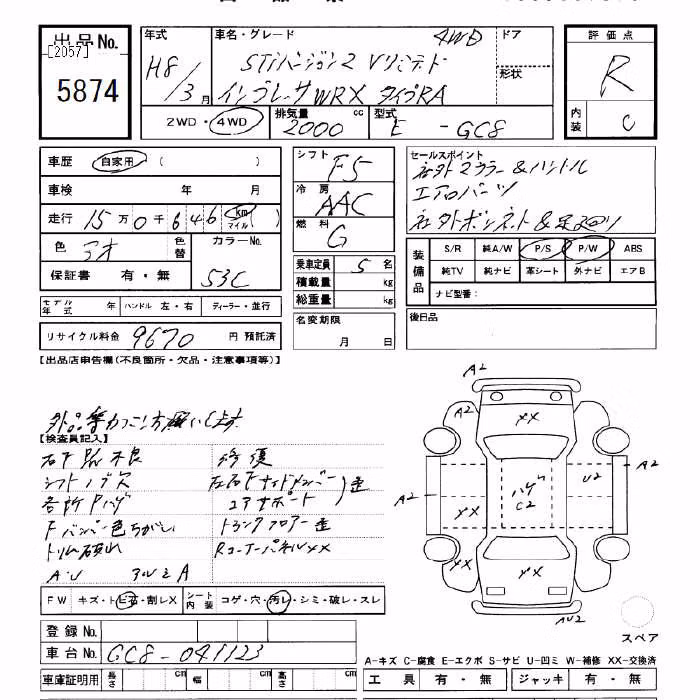 出品No.
[2057]
5874
年式
H8/3月
車名・グレード
4WD
STiバージョン2 Vリミテド
インプレーサWRX タイプRA
ドア
形状
評価点
R
内装 C
2WD・4WD
排気量 2000 cc
型式 E - GC8
車歴 自家用 ( )
車検 年 月
走行 15万0千646 km マイル ( )
色 アオ
色替
カラーNo. 53C
保証書 有・無
モデル年式 年
ハンドル 左・右
ディーラー・並行
リサイクル料金 9670 円 預託済
シフト F5
冷房 AAC
燃料 G
乗車定員 5 名
積載量 kg
総重量 kg
名変期限
月 日
セールスポイント
社外マフラー&ハンドル
エアロパーツ
社外ボンネット&足廻り
装備品
S/R 純A/W P/S P/W ABS
純TV 純ナビ 革シート 外ナビ エアB
ナビ型番:
後日品
【出品店申告欄(不良箇所・欠品・注意事項等)】
【検査員記入】
シフトノブ欠
各所Pハゲ
Fバンパー色ちがい
A・U
左右Fサイドメンバー
コアサポート
歪
トランクフロアー歪
RコーナーパネルXX
FW キズ・トビ石・割レX
シート内装 コゲ・穴・汚レ・シミ・破レ・スレ
登録No.
車台No. GC8-041123
車庫証明用 長さ cm 幅 cm 高さ cm
A2
A2
XX
A2
A2
ハゲ
C2
U2
XX
XX
XX
AU2
スペア
A-キズ C-腐食 E-エクボ S-サビ U-凹ミ W-補修 XX-交換済
工具 有・無 ジャッキ 有・無